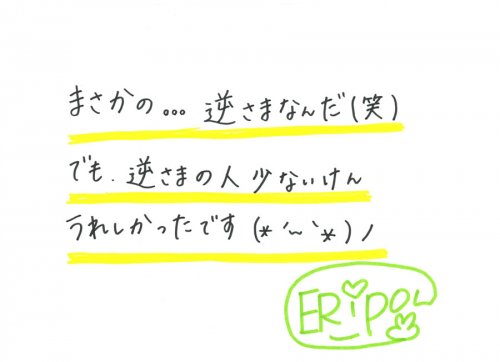 まさかの... 逆さまなんだ(笑)
でも、逆さまの人少ないけん
うれしかったです (*´～`*)ノ
ERiPO